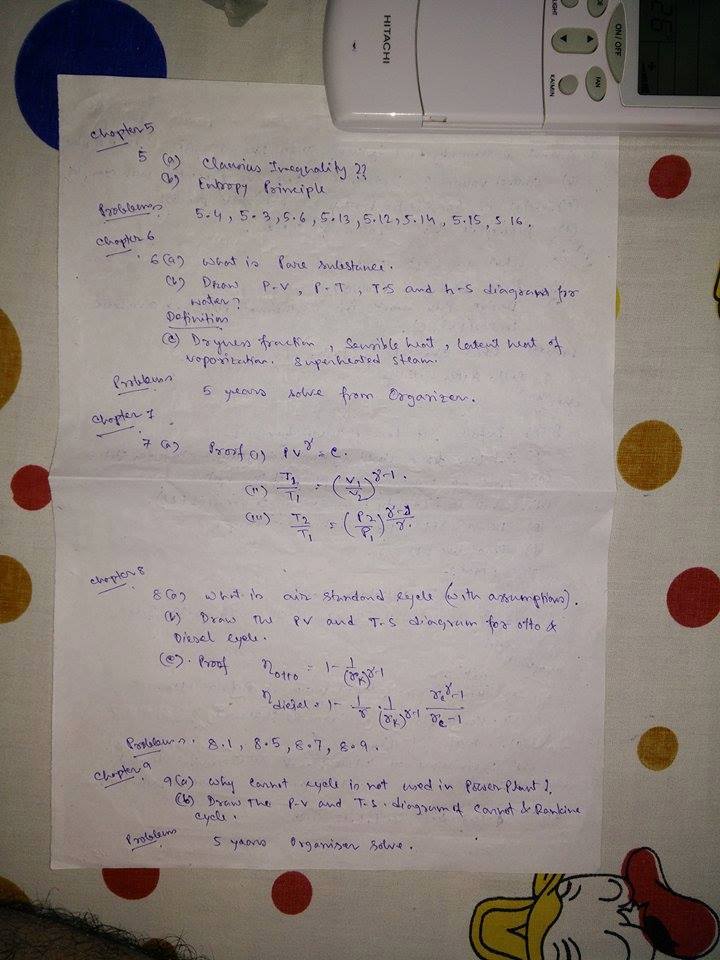 HITACHI
LIGHT
ON/OFF
FAN
KAIMIN
26
Chapter 5
5 (a) Clausius Inequality ??
(b) Entropy Principle
Problems 5.4, 5.3, 5.6, 5.13, 5.12, 5.14, 5.15, 5.16.
Chapter 6
6(a) What is Pure substance.
(b) Draw P-V, P-T, T-S and h-S diagrams for
water?
Definition
(c) Dryness fraction, Sensible heat, Latent heat of
vaporization. Superheated steam.
Problems 5 years solve from Organizer.
Chapter 7
7 (a) Proof (i) PV^γ = C.
(ii) T2/T1 = (V1/V2)^γ-1.
(iii) T2/T1 = (P2/P1)^γ-1/γ.
Chapter 8
8(a) What is air standard cycle (with assumptions).
(b) Draw The PV and T-S diagram for otto &
Diesel cycle.
(c). Proof η otto = 1 - 1/(rk)^γ-1
η diesel = 1 - 1/γ . 1/(rk)^γ-1 rc^γ-1/rc-1
Problems. 8.1, 8.5, 8.7, 8.9.
Chapter 9
9(a) Why Carnot cycle is not used in Power Plant?
(b) Draw The P-V and T-S. diagram of Carnot & Rankine
cycle.
Problems 5 years Organiser solve.